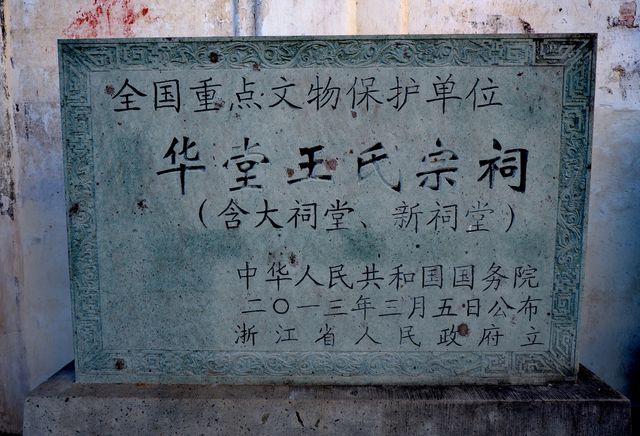 全国重点文物保护单位
华堂王氏宗祠
（含大祠堂、新祠堂）
中华人民共和国国务院
二〇一三年三月五日公布
浙江省人民政府立